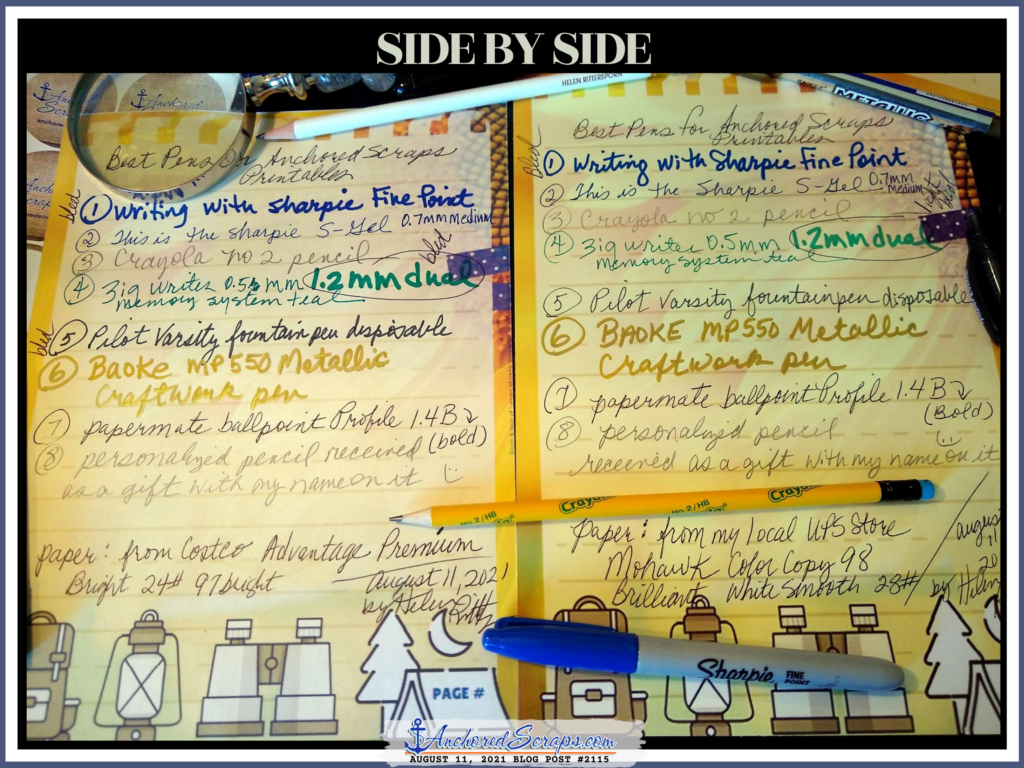 SIDE BY SIDE
HELEN RITTERSPORN
Anchored
Best Pens for Anchored Scraps
Printables
bled
① Writing with Sharpie Fine Point
② This is the Sharpie S-Gel 0.7mm Medium
③ Crayola no 2 pencil
bled
④ Zig Writer 0.5 mm 1.2mm dual
memory system teal
bled
⑤ Pilot Varsity fountain pen disposable
⑥ BAOKE MP550 Metallic
Craftwork pen
⑦ papermate ballpoint Profile 1.4B
(bold)
⑧ personalized pencil received
as a gift with my name on it
paper: from Costco Advantage Premium
Bright 24# 97 bright
August 11, 2021
by Helen
PAGE #
Best Pens for Anchored Scraps
Printables
bled
① Writing with Sharpie Fine Point
② This is the Sharpie S-Gel 0.7mm
Medium
light
bled
③ Crayola no 2 pencil
④ Zig Writer 0.5mm 1.2mm dual
memory system teal
⑤ Pilot Varsity fountain pen disposable
⑥ BAOKE MP550 Metallic
Craftwork pen
⑦ papermate ballpoint Profile 1.4B
(Bold)
⑧ personalized pencil
received as a gift with my name on it
No. 2 / HB
Crayola
No. 2 / HB
Crayola
paper: from my local UPS Store
Mohawk Color Copy 98
Brilliant White Smooth 28#
august
11
20
by Helen
Sharpie FINE
POINT
AnchoredScraps.com
AUGUST 11, 2021 BLOG POST #2115